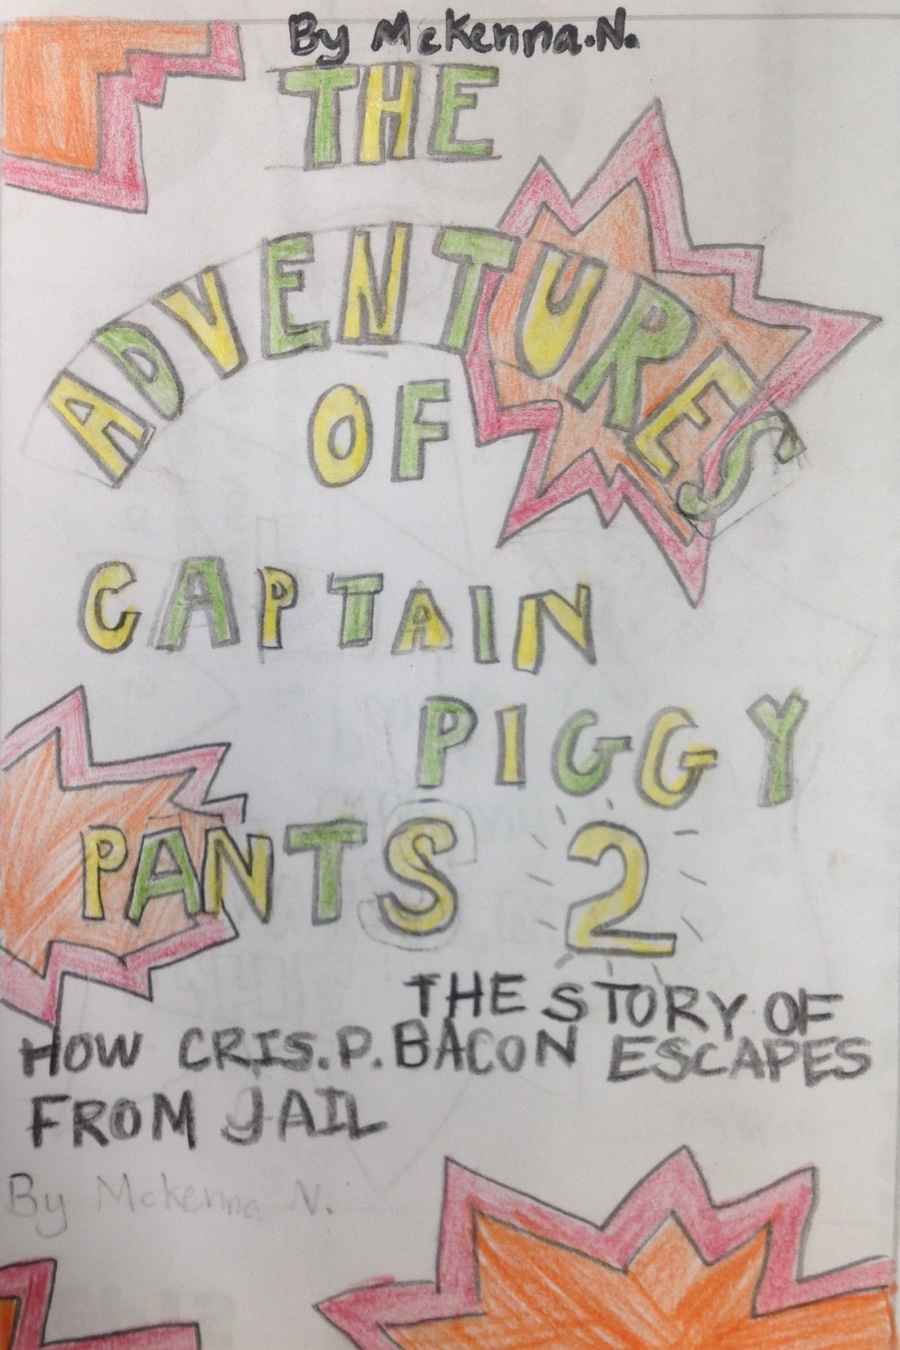 By McKenna.N.
THE
ADVENTURES
OF
CAPTAIN
PIGGY
PANTS 2
THE STORY OF
HOW CRIS.P.BACON ESCAPES
FROM JAIL
By Mckenna N.